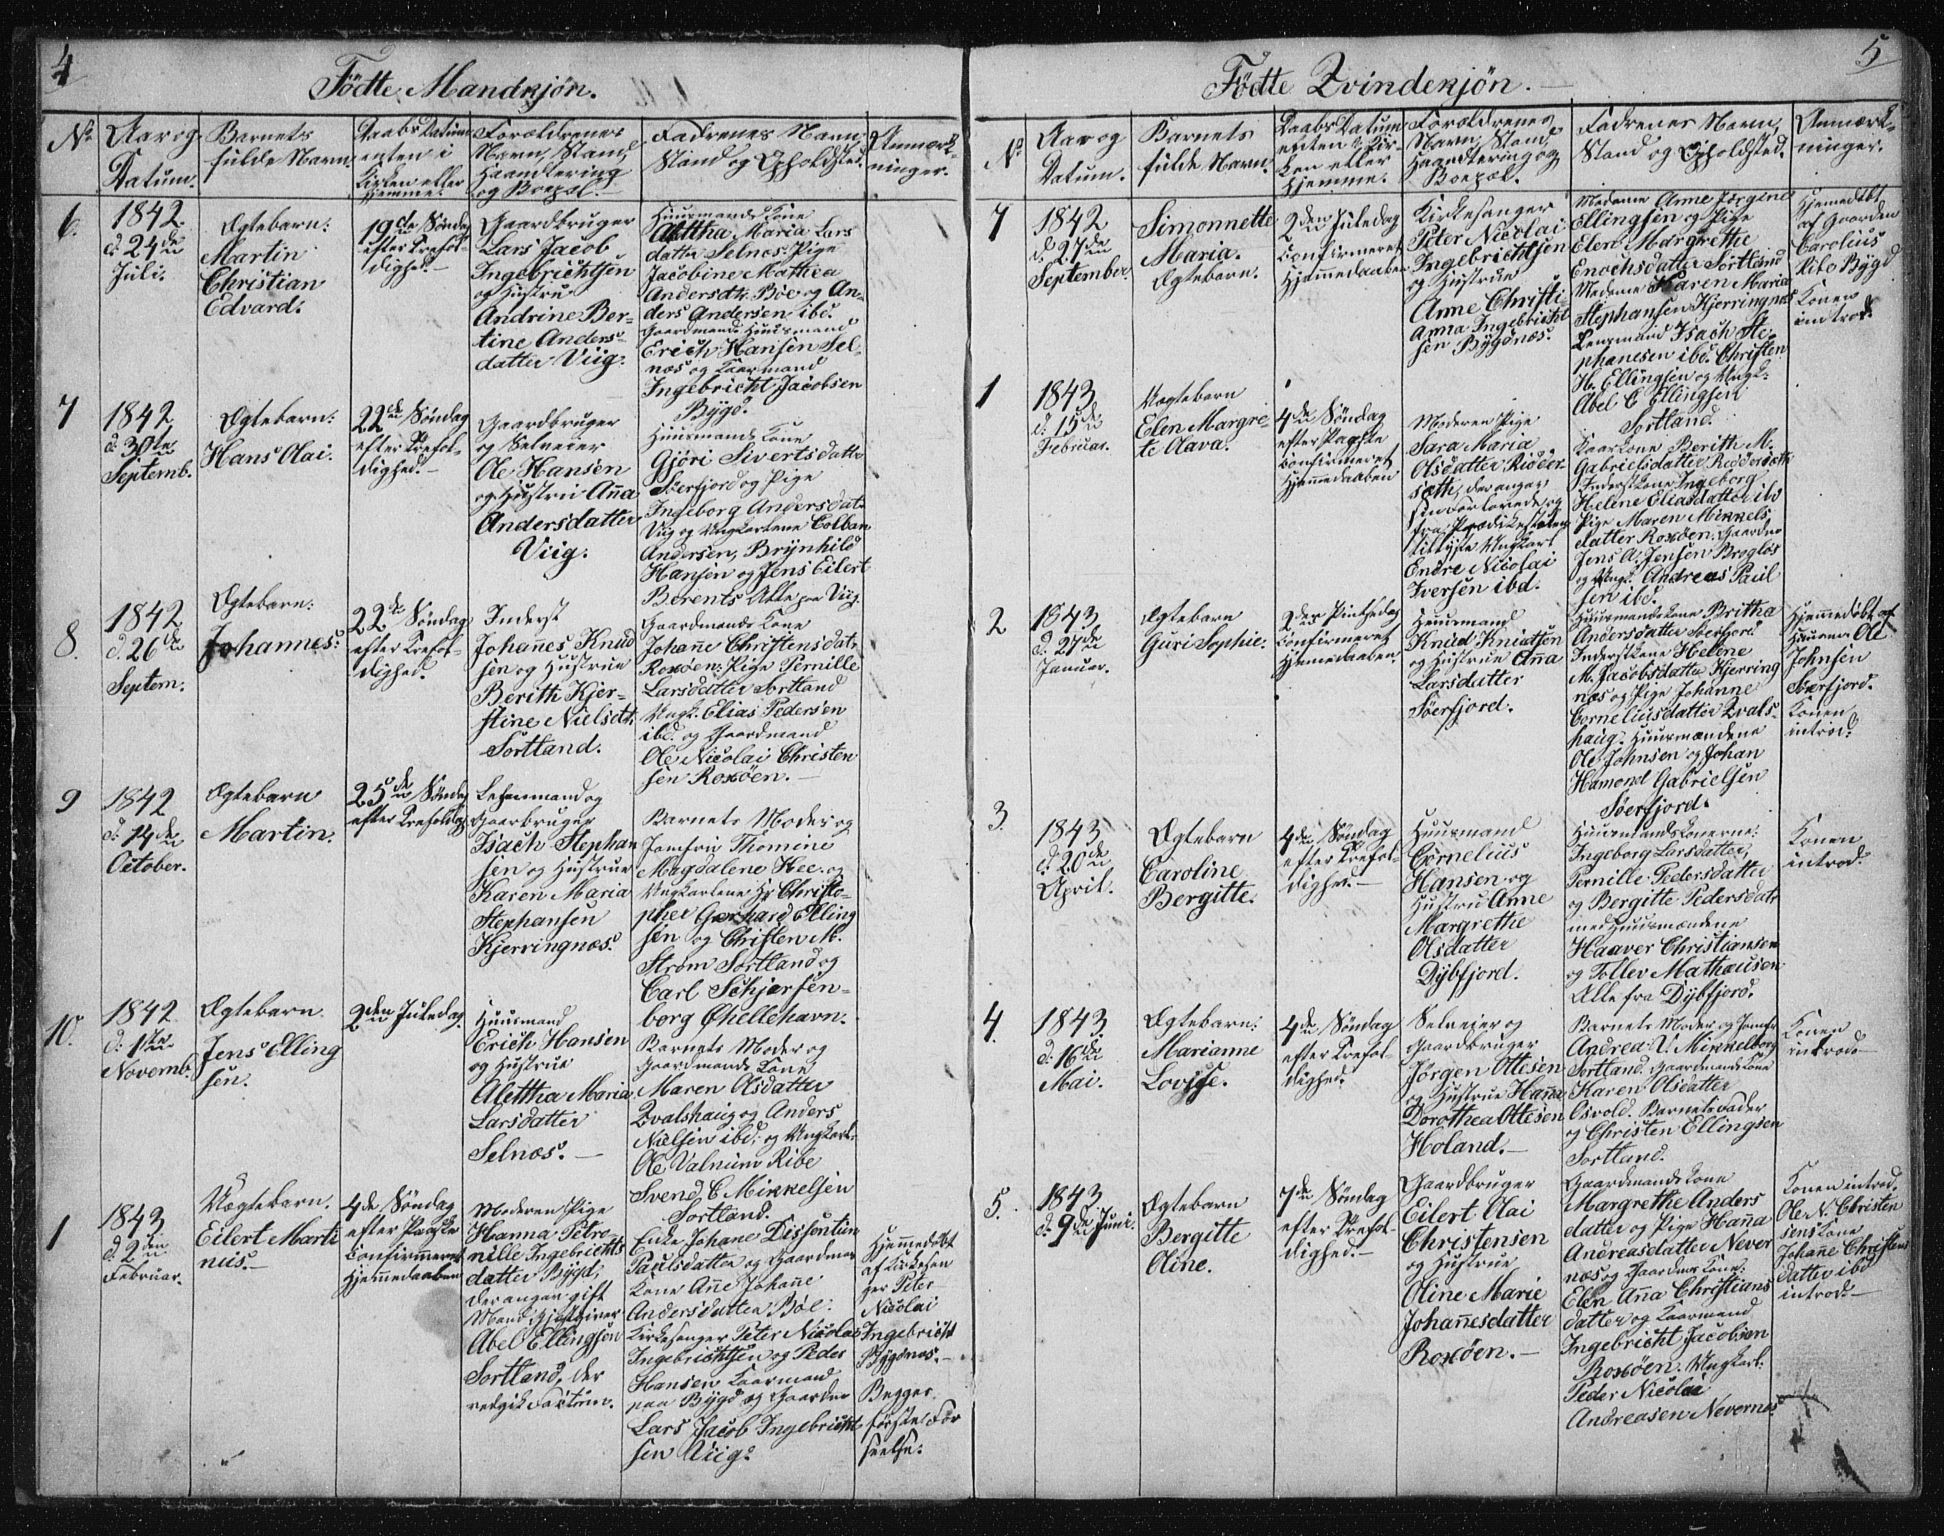 4
Fødte Mandkjøn.
No
Aar og
Datum.
Barnets
fulde Navn.
Daabs Datum
enten i
Kirken eller
hjemme.
Forældrenes
Navn, Stand,
Haandtering
og Boepæl.
Fadrenes Navn
Stand og Opholdsted.
Anmærk-
ninger.
6.
1842.
d. 24de
Juli.
Ægtebarn:
Martin
Christian
Edvard.
19de Søndag
efter Trefol-
dighed.
Gaardbruger
Lars Jacob
Ingebrichtsen
og Hustru
Andrine Ber-
tine Anders-
datter Viig.
Huusmands Kone
Alettha Maria Lars
datter Selnæs, Pige
Jacobine Mathea
Andersdtr. Böe og An-
ders Andersen ibd.
Gaardmand Huusmand
Erich Hansen Sel-
næs og Kaarmand
Ingebricht Jacobsen
Bygd.
7
1842
d. 30te
Septemb.
Ægtebarn:
Hans Olai.
22de Søndag
efter Trefol-
dighed.
Gaardbruger
og Selveier
Ole Hansen
og Hustrue Anna
Andersdatter
Viig.
Huusmands Kone
Gjöri Sivertsdatter
Söerfjord og Pige
Ingeborg Andersdatr
Viig og Ungkarlene Colban
Andersen, Brynhild
Hansen og Jens Eilert
Berents Alle paa Viig.
8.
1842
d. 26de
Septem.
Ægtebarn:
Johannes.
22de Søndag
efter Trefol-
dighed.
Inderst
Johannes Knud
sen og Hustrue
Berith Kjer-
stine Nielsdt.
Sortland.
Gaardmands Kone
Johanne Christensdatr
Roxöen: Pige Pernille
Larsdatter Sortland
Ungk. Elias Pedersen
ibd. og Gaardmand
Ole Nicolai Christen
sen Roxöen.
9
1842
d. 14de
October.
Ægtebarn
Martin.
25de Søndag
efter Trefoldigh.
Lehnsmand og
Gaarbruger
Isach Stephan
sen og Hustrue
Karen Maria
Stephansen
Kjerringnæs.
Barnets Moder og
Jomfru Thomine
Magdalene Hee og
Ungkarlene Hr Christo-
pher Gerhard Elling
sen og Christen M.
Strøm Sortland og
Carl Schjersen-
borg Qhellehavn.
10.
1842
d. 1te
Novemb.
Ægtebarn
Jens Elling
sen.
2den Juledag.
Huusmand
Erich Hansen
og Hustrue
Alettha Maria
Larsdatter
Selnæs.
Barnets Moder og
Gaardmands Kone
Maren Olsdatter
Qvalshaug og Anders
Nielsen ibd. og Ungkarl.
Ole Valnum Ribe
Svend C Mikkelsen
Sortland.
1
1843
d. 2den
Februar.
Uægtebarn.
Eilert Marti
nus.
4de Søndag
efter Paaske
confirmeret
Hjemmedaaben
Moderen Pige
Hanna Petro-
nille Ingebrichts
datter Bygd,
der angav gift
Mand Gjestgiver
Abel Ellingsen
Sortland, der
vedgik Factum.
Enke Johane Dissontien
Paulsdatter og Gaardman
Kone Ane Johanne
Andersdatter Böe:
Kirkesanger Peter Nicolai
Ingebrichtsen og Peder
Hansen Kaarmand
paa Bygd og Gaardm
Lars Jacob Ingebricht
sen Viig.
Hjemmedøbt
af Kirkesan
ger Peter
Nicolai
Ingebricht
Bygdnæs.
Begges
første For
seelse.
5
Fødte Qvindekjøn.
No
Aar og
Datum.
Barnets
fulde Navn.
Daabs Datum
enten i Kir-
ken eller
hjemme.
Forældrenes
Navn, Stand,
Haandtering og
Boepæl.
Fadrenes Navn,
Stand og Opholdsted.
Anmærk-
ninger.
7
1842
d. 27de
September.
Simonnette
Maria.
Ægtebarn.
2den Juledag
confirmeret
Hjemmedaaben
Kirkesanger
Peter Nicolai
Ingebrichtsen
og Hustrue
Anne Christi
Anna Ingebricht
sen Bygdnæs.
Madame Anne Jörgine
Ellingsen og Pige
Elen Margrethe
Enochsdatter Sortland
Madame Karen Maria
Stephansen Kjerringnæs
Lensmand Isach Ste-
phanesen ibd. Christen
H. Ellingsen og Ungk.
Abel C Ellingsen
Sortland.
Hjemedöbt
af Gaardm
Carolius
Ribe Bygd
Konen
introd.
1
1843
d. 15de
Februar.
Uægtebarn
Elen Margre
te Olava.
4de Søndag
efter Paaske
confirmeret
Hjemmedaaben
Moderen Pige
Sara Maria
Olsdatter Ridder-
sæth, der angav
sin Forlovede og
fra Prædikestolen
tillyste Ungkarl
Endre Nicolai
Iversen ibd.
Kaarkone Berith M.
Gabrielsdatter Reddersæth
Inderstkone Ingeborg
Helene Eliasdatter ibd
Pige Maren Mikkels
datter Roxöen. Gaardm
Jens A. Jensen Brogløs
og Ungk. Andreas Paul
sen ibd.
2
1843
d. 27de
Januar.
Ægtebarn
Guri Sophie.
2den Pintsedag
confirmeret
Hjemedaaben.
Huusmand
Knud Knudsen
og Hustrue Anna
Larsdatter
Söerfjord.
Huusmandskone Britha
Andersdatter Söerfjord
Inderstkone Helene
M. Jacobsdatter Kjerring
næs og Pige Johanne
Corneliusdatter Qvals-
haug. Huusmændene
Ole Johnsen og Johan
Hamond Gabrielsen
Söerfjord.
Hjemmedöbt af
Huusm. Ole
Johnsen
Söerfjord.
Konen
introd.
3.
1843
d. 20de
April.
Ægtebarn
Caroline
Bergitte.
4de Søndag
efter Trefol-
dighed.
Huusmand
Cornelius
Hansen og
Hustrue Anne
Margrethe
Olsdatter
Dybfjord.
Huusmandskonerne:
Ingeborg Larsdatter,
Pernille Pedersdatter
og Bergitte Pedersdatr
med Huusmændene
Haaver Christiansen
og Tollev Mathæusen
Alle fra Dybfjord.
Konen
introd.
4.
1843
d. 16de
Mai.
Ægtebarn:
Marianne
Lovise.
4de Søndag
efter Trefol-
dighed.
Selveier og
Gaardbruger
Jörgen Ottesen
og Hustrue Hanna
Dorothea Ottesen
Holand.
Barnets Moder og Jomfr
Andrea U. Mikkelborg
Sortland. Gaardmands Kone
Karen Olsdatter
Osvold. Barnets Fader
og Christen Ellingsen
Sortland.
Konen
introd.
5.
1843
d. 9de Juni.
Ægtebarn
Bergitte
Oline.
7de Søndag
efter Trefol-
dighed.
Gaardbruger
Eilert Olai
Christensen
og Hustrue
Oline Marie
Johannesdatter
Roxöen.
Gaardmandskone
Margrethe Anders
datter og Pige Hanna
Andreasdatter Never
næs og Gaardm Kone:
Elen Anna Christians
datter og Kaarmand
Ingebricht Jacobsen
Roxöen. Ungkarl:
Peder Nicolai
Andreasen Nevernæs
Konen introd.
Ole N. Christen
sens Kone
Johane Christens
datter ibd
introd.